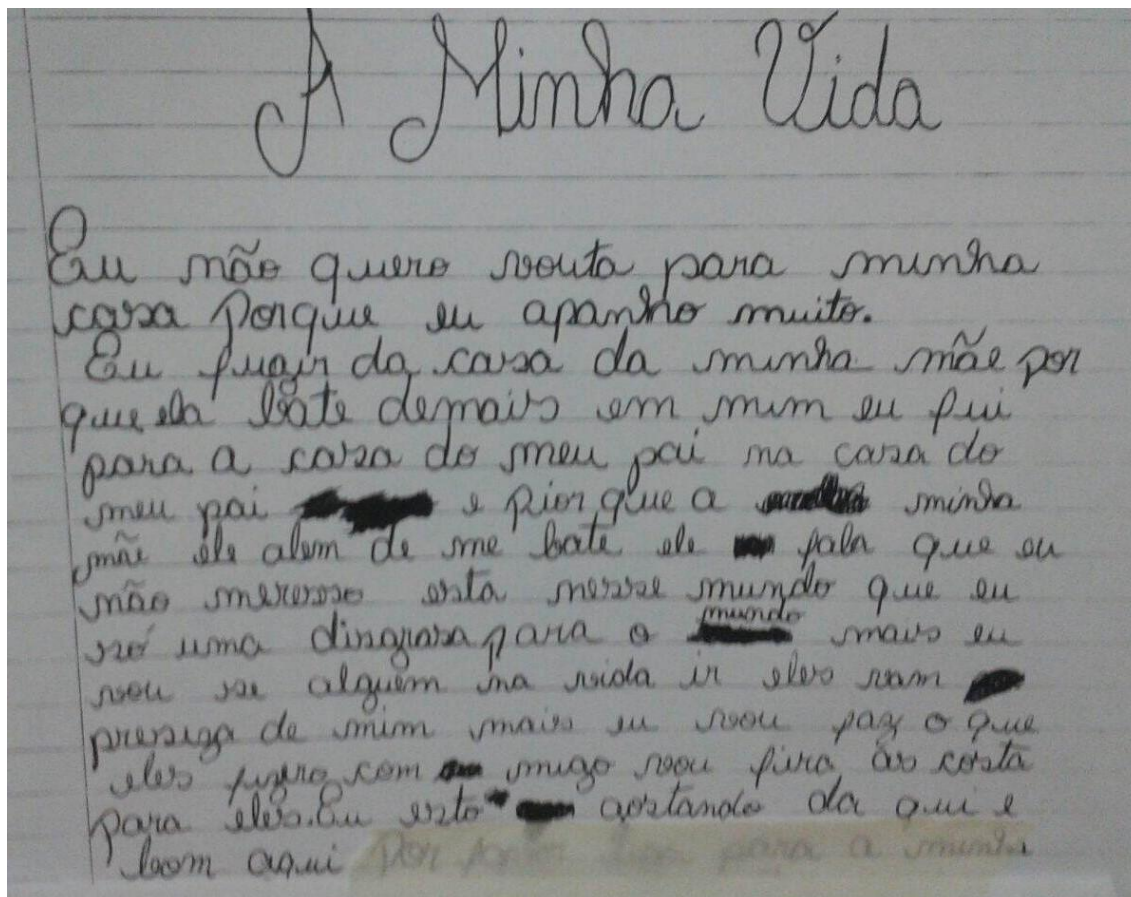 A Minha Vida
Eu não quero vouta para minha
casa Porque eu apanho muito.
Eu fugir da casa da minha mãe por
que ela bate demais em mim eu fui
para a casa do meu pai na casa do
meu pai e pior que a minha
mãe ele alem de me bate ele fala que eu
não mereso esta nesse mundo que eu
só uma disgrasa para o mundo mais eu
vou se alguém na vida ir eles vam
presiza de mim mais eu vou faz o que
eles fizero com migo vou fira as costa
para eles. Eu esto gostando da qui e
bom aqui para a minha